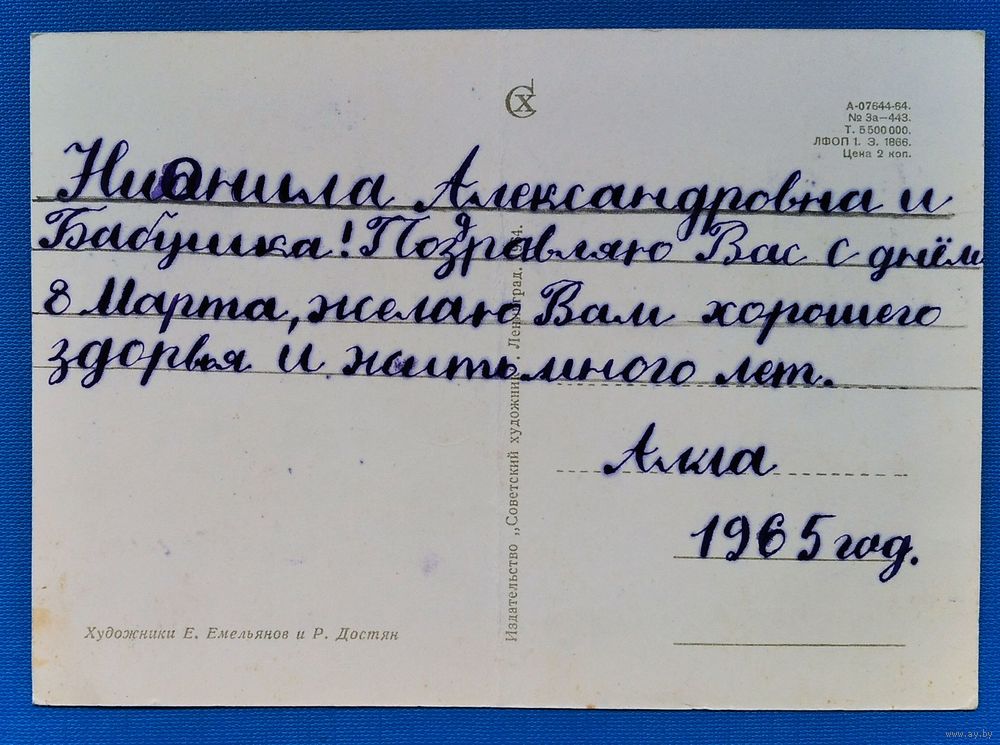 СХ
А-07644-64.
№ За—443.
Т. 5 500 000.
ЛФОП 1. З. 1866.
Цена 2 коп.
Александровна и
Бабушка! Поздравляю Вас с днём
8 Марта, желаю Вам хорошего
здорвья и жить много лет.
1965 год.
Издательство „Советский художник". Ленинград.
Художники Е. Емельянов и Р. Достян
www.ay.by